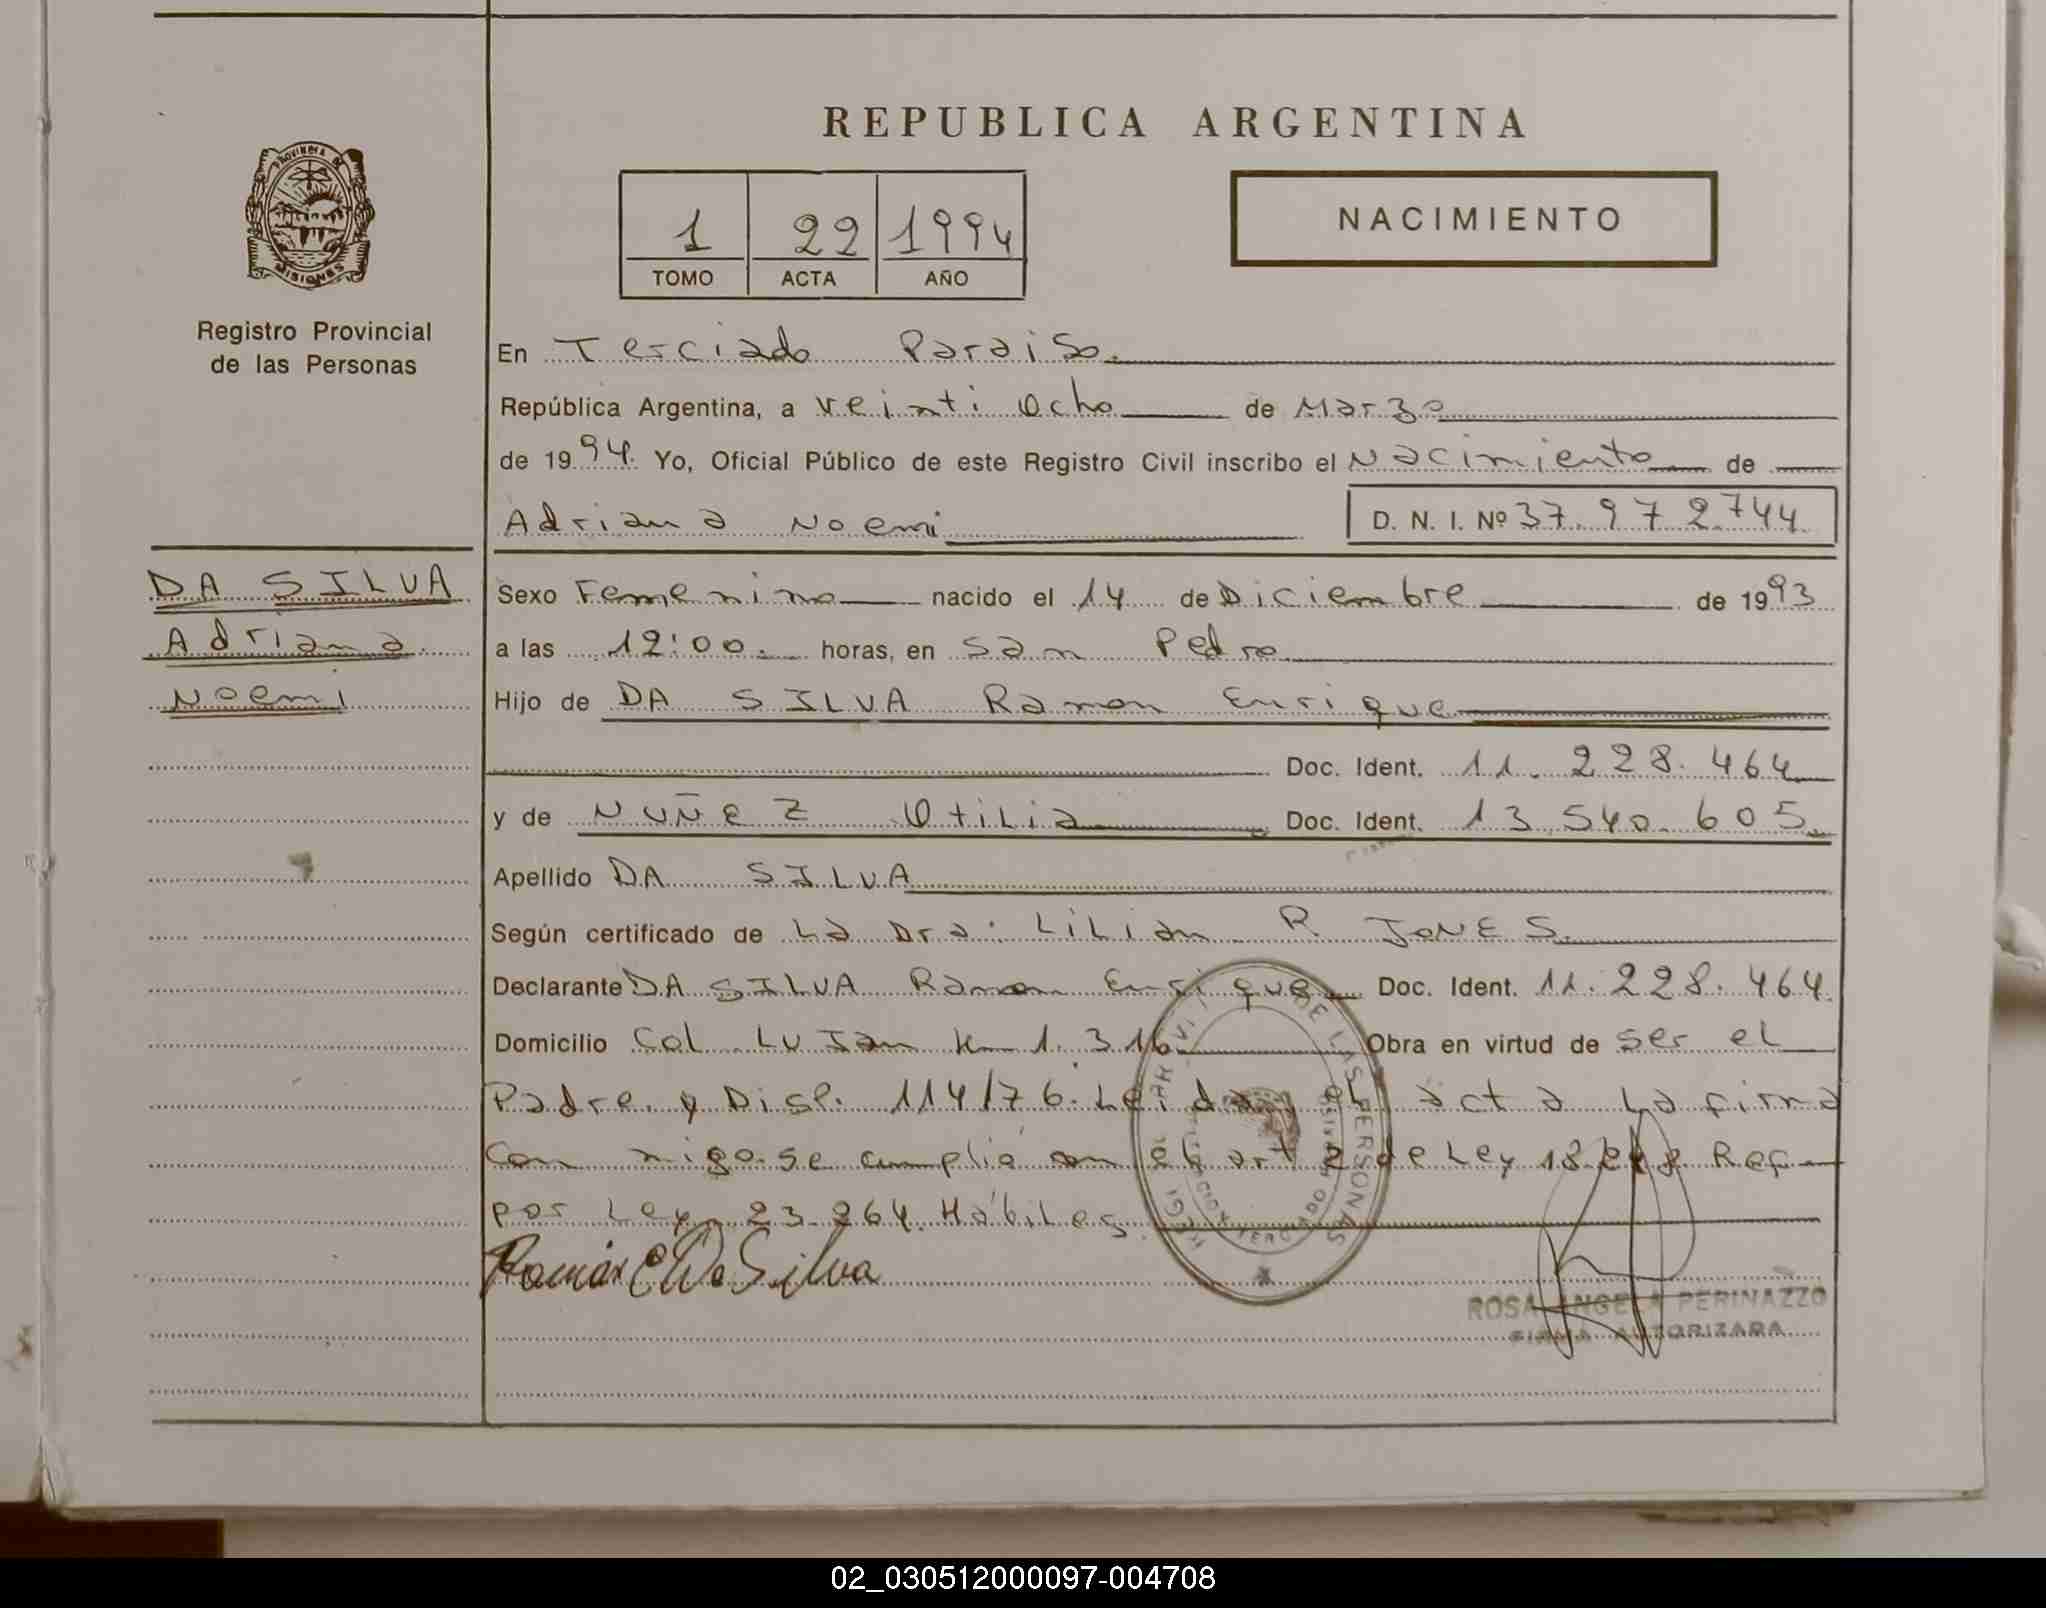 REPUBLICA ARGENTINA
PROVINCIA DE
MISIONES
Registro Provincial
de las Personas
1 22 1994
TOMO ACTA AÑO
NACIMIENTO
En Terciado Paraiso.
República Argentina, a veinti Ocho de Marzo
de 1994. Yo, Oficial Público de este Registro Civil inscribo el Nacimiento de
Adriana Noemi D. N. I. Nº 37.972.744
DA SILVA
Adriana
Noemi
Sexo Femenino nacido el 14 de Diciembre de 1993
a las 12:00. horas, en San Pedro
Hijo de DA SILVA Ramon Enrique
Doc. Ident. 11.228.464
y de NUÑEZ Otilia Doc. Ident. 13.540.605
Apellido DA SILVA
Según certificado de La Dra. Lilian R JONES.
Declarante DA SILVA Ramon Enrique Doc. Ident. 11.228.464
Domicilio Col. Lujan Km 1.316 Obra en virtud de ser el
Padre y Disp. 114/76. Leida el acta La firma
Con migo. se cumplió con el art 2 de Ley 18.248 Ref
por Ley 23.264. Hábiles.
DE LAS PERSONAS
Ramón E Da Silva
ROSA ANGELA PERINAZZO
FIRMA AUTORIZADA
02_030512000097-004708